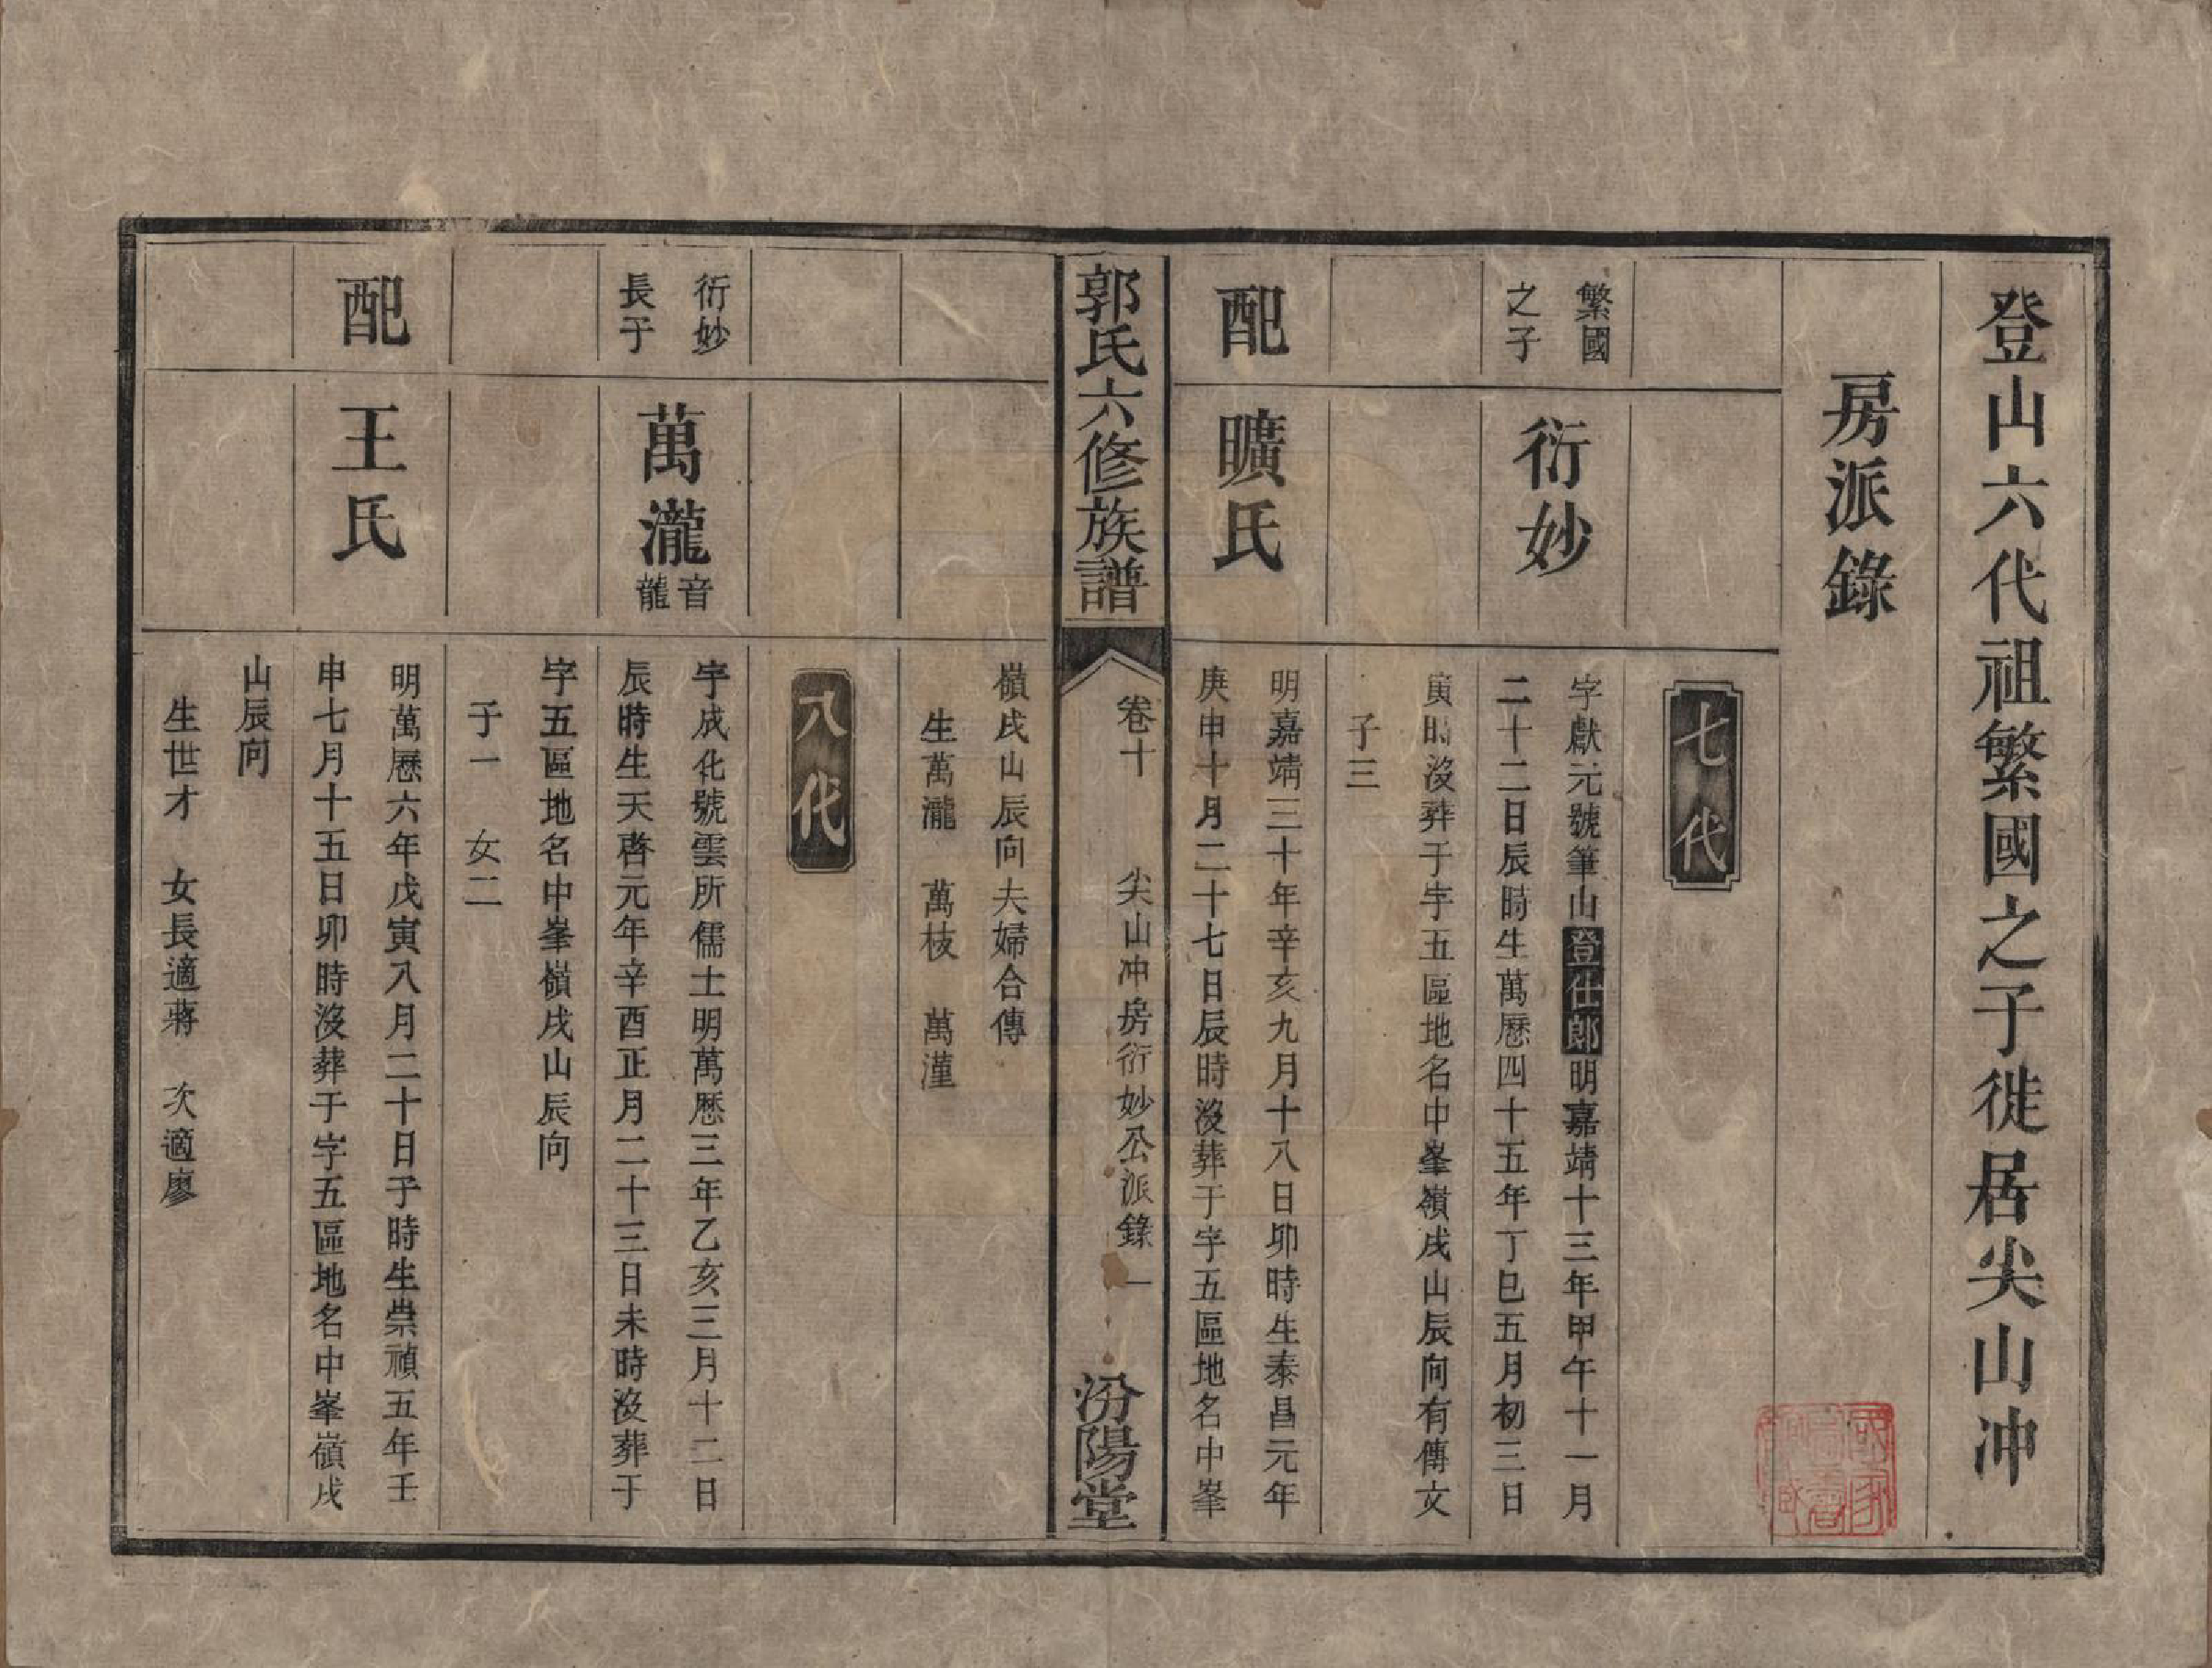 登山六代祖繁國之子徙居尖山冲
房派錄
七代
繁國
之子
衍妙
字獻元號筆山登仕郎明嘉靖十三年甲午十一月
二十二日辰時生萬歷四十五年丁巳五月初三日
寅時沒葬于字五區地名中峯嶺戌山辰向有傳文
子三
配
曠氏
明嘉靖三十年辛亥九月十八日卯時生泰昌元年
庚申十月二十七日辰時沒葬于字五區地名中峯
郭氏六修族譜
卷十
尖山冲房衍妙公派錄
一
汾陽堂
嶺戌山辰向夫婦合傳
生萬瀧 萬枝 萬滝
八代
衍妙
長子
萬瀧
音
龍
字成化號雲所儒士明萬歷三年乙亥三月十二日
辰時生天啓元年辛酉正月二十三日未時沒葬于
字五區地名中峯嶺戌山辰向
子一 女二
配
王氏
明萬歷六年戊寅八月二十日子時生崇禎五年壬
申七月十五日卯時沒葬于字五區地名中峯嶺戌
山辰向
生世才 女長適蔣 次適廖